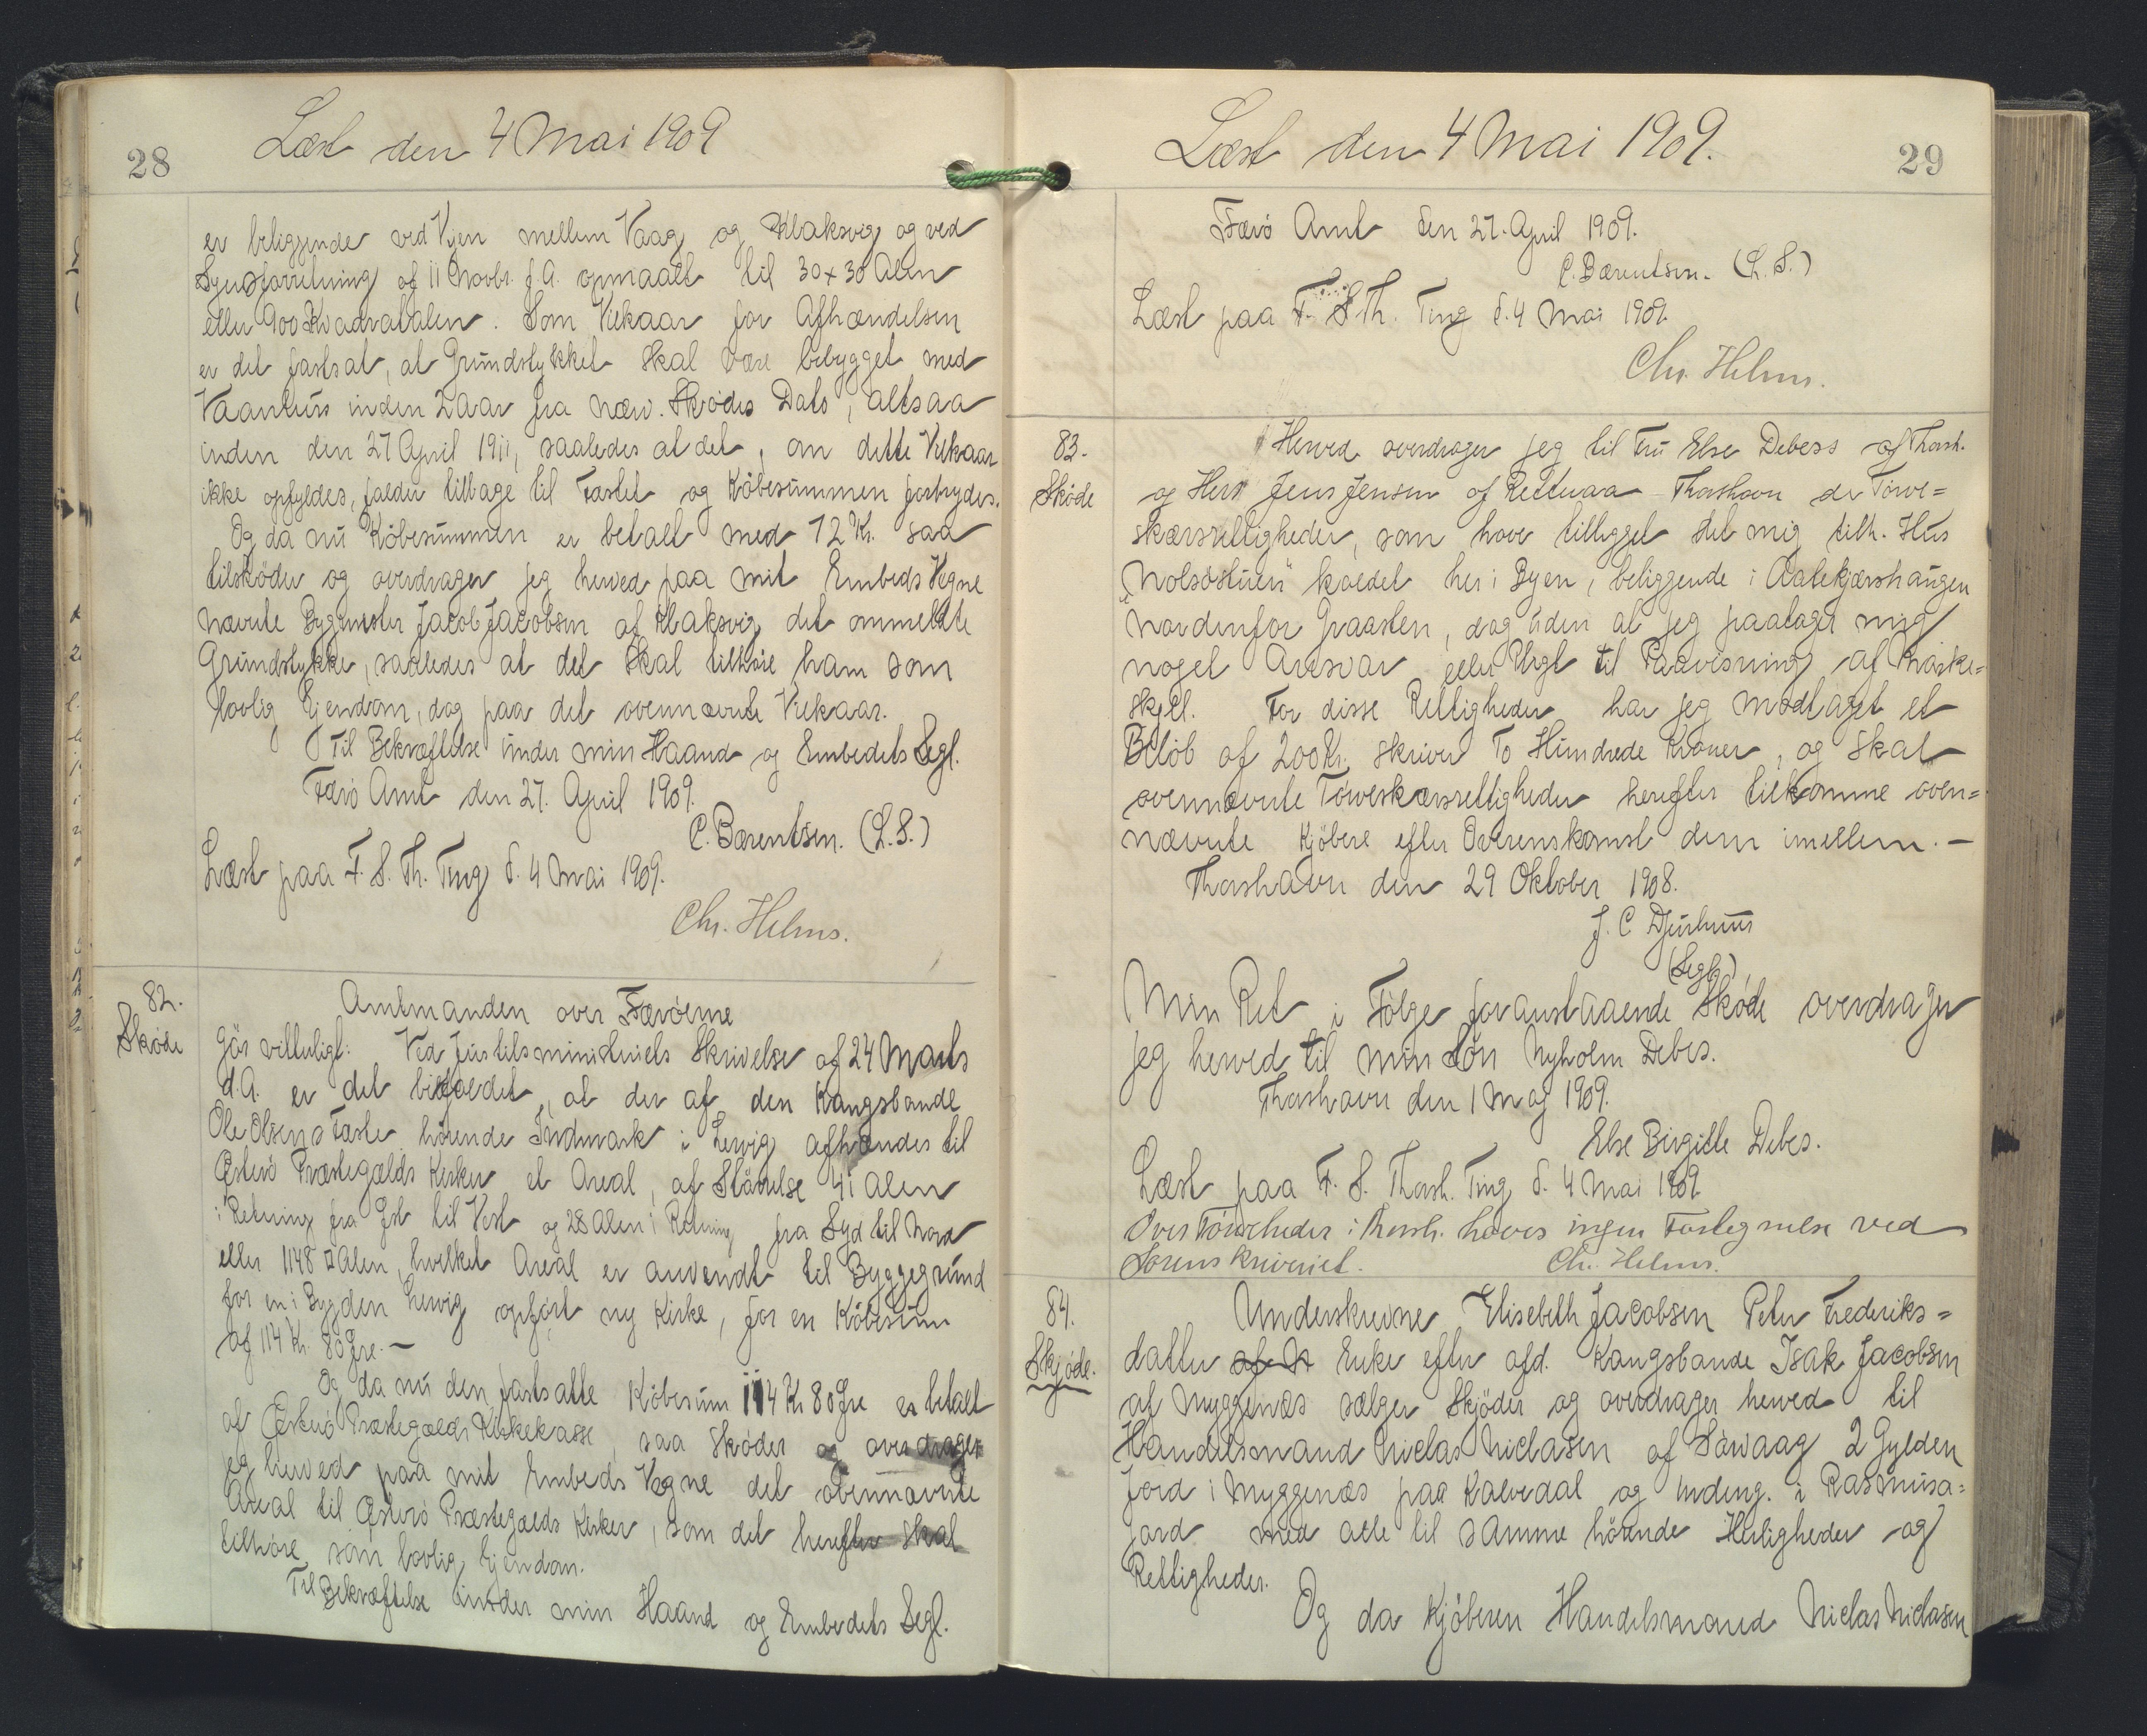 28
Læst den 4 Mai 1909
er beliggende ved Vejen mellem Vaag og Klaksvig og ved
Synsforretning af 11 Novbr. f. A. opmaalt til 30 x 30 Alen
eller 900 Kvadratalen. Som Vilkaar for Afhændelsen
er det fastsat, at Grundstykket skal være bebygget med
Vaanhus inden 2 Aar fra nærv. Skødes Dato, altsaa
inden den 27 April 1911, saaledes at det, om dette Vilkaar
ikke opfyldes, falder tilbage til Fæstet og Købesummen fortrydes.
Og da nu Købesummen er betalt med 72 Kr. saa
tilskøder og overdrager jeg herved paa mit Embeds Vegne
nævnte Bygmester Jacob Jacobsen af Klaksvig det ommeldte
Grundstykke, saaledes at det skal tilhøre ham som
lovlig Ejendom, dog paa det ovennævnte Vilkaar.
Til Bekræftelse under min Haand og Embedets Segl.
Færø Amt den 27. April 1909.
C. Bærentsen. (L.S.)
Læst paa F. S. Th. Ting d. 4 Mai 1909.
Chr. Helms.
82.
Skøde
Amtmanden over Færøerne
gør vitterligt: Ved Justitsministeriets Skrivelse af 24 Marts
d.A. er det bifaldet, at der af den Kongsbonde
Ole Olsens Fæste hørende Indmark i Lervig afhændes til
Østerø Præstegælds Kirker et Areal, af Størrelse 41 Alen
i Retning fra Øst til Vest og 28 Alen i Retning fra Syd til Nord
eller 1148 □ Alen, hvilket Areal er anvendt til Byggegrund
for en i Bygden Lervig opført ny Kirke, for en Købesum
af 114 Kr. 80 Øre. -
Og da nu den fastsatte Købesum 114 Kr 80 Øre er betalt
af Østerø Præstegælds Kirkekasse, saa skøder og overdrager
jeg herved paa mit Embeds Vegne det ovennævnte
Areal til Østerø Præstegælds Kirker, som det herefter skal
tilhøre som lovlig Ejendom.
Til Bekræftelse under min Haand og Embedets Segl.
Læst den 4 Mai 1909.
29
Færø Amt den 27. April 1909.
C. Bærentsen. (L.S.)
Læst paa F. S Th. Ting d. 4 Mai 1909.
Chr. Helms.
83.
Skøde
Herved overdrager jeg til Fru Else Debess af Thorsh.
og Herr Jens Jensen af Rættaraa Thorshavn de Tørve=
skærsrettigheder, som have tilligget det mig tilh. Hus
"Nolsøstuen" kaldet her i Byen, beliggende i Aalekjærshaugen
Nordenfor Graasten, dog uden at jeg paatager mig
noget Ansvar eller Pligt til Paavisning af Marke=
skjel. For disse Rettigheder har jeg modtaget et
Beløb af 200 Kr. skriver To Hundrede Kroner, og skal
ovennævnte Tørveskærsrettigheder herefter tilkomme oven=
nævnte Kjøbere efter Overenskomst dem imellem. -
Thorshavn den 29 Oktober 1908.
J. C Djurhuus
(Segl)
Min Ret i Følge foranstaaende Skøde overdrager
jeg herved til min Søn Nyholm Debes.
Thorshavn den 1 Maj 1909.
Else Birgitte Debes.
Læst paa F. S. Thorsh. Ting d. 4 Mai 1909
Over Tørveheder i Thorsh. haves ingen Fortegnelse ved
Sorenskriveriet. Chr. Helms.
84.
Skjøde.
Underskrevne Elisebeth Jacobsen Peter Frederiks=
datter af N Enke efter afd. Kongsbonde Isak Jacobsen
af Myggenæs sælger skjøder og overdrager herved til
Handelsmand Niclas Niclasen af Sørvaag 2 Gylden
Jord i Myggenæs paa Kalvedal og Inding. i Rasmusa=
jord med alle til samme hørende Herligheder og
Rettigheder.
Og da Kjøberen Handelsmand Niclas Niclasen